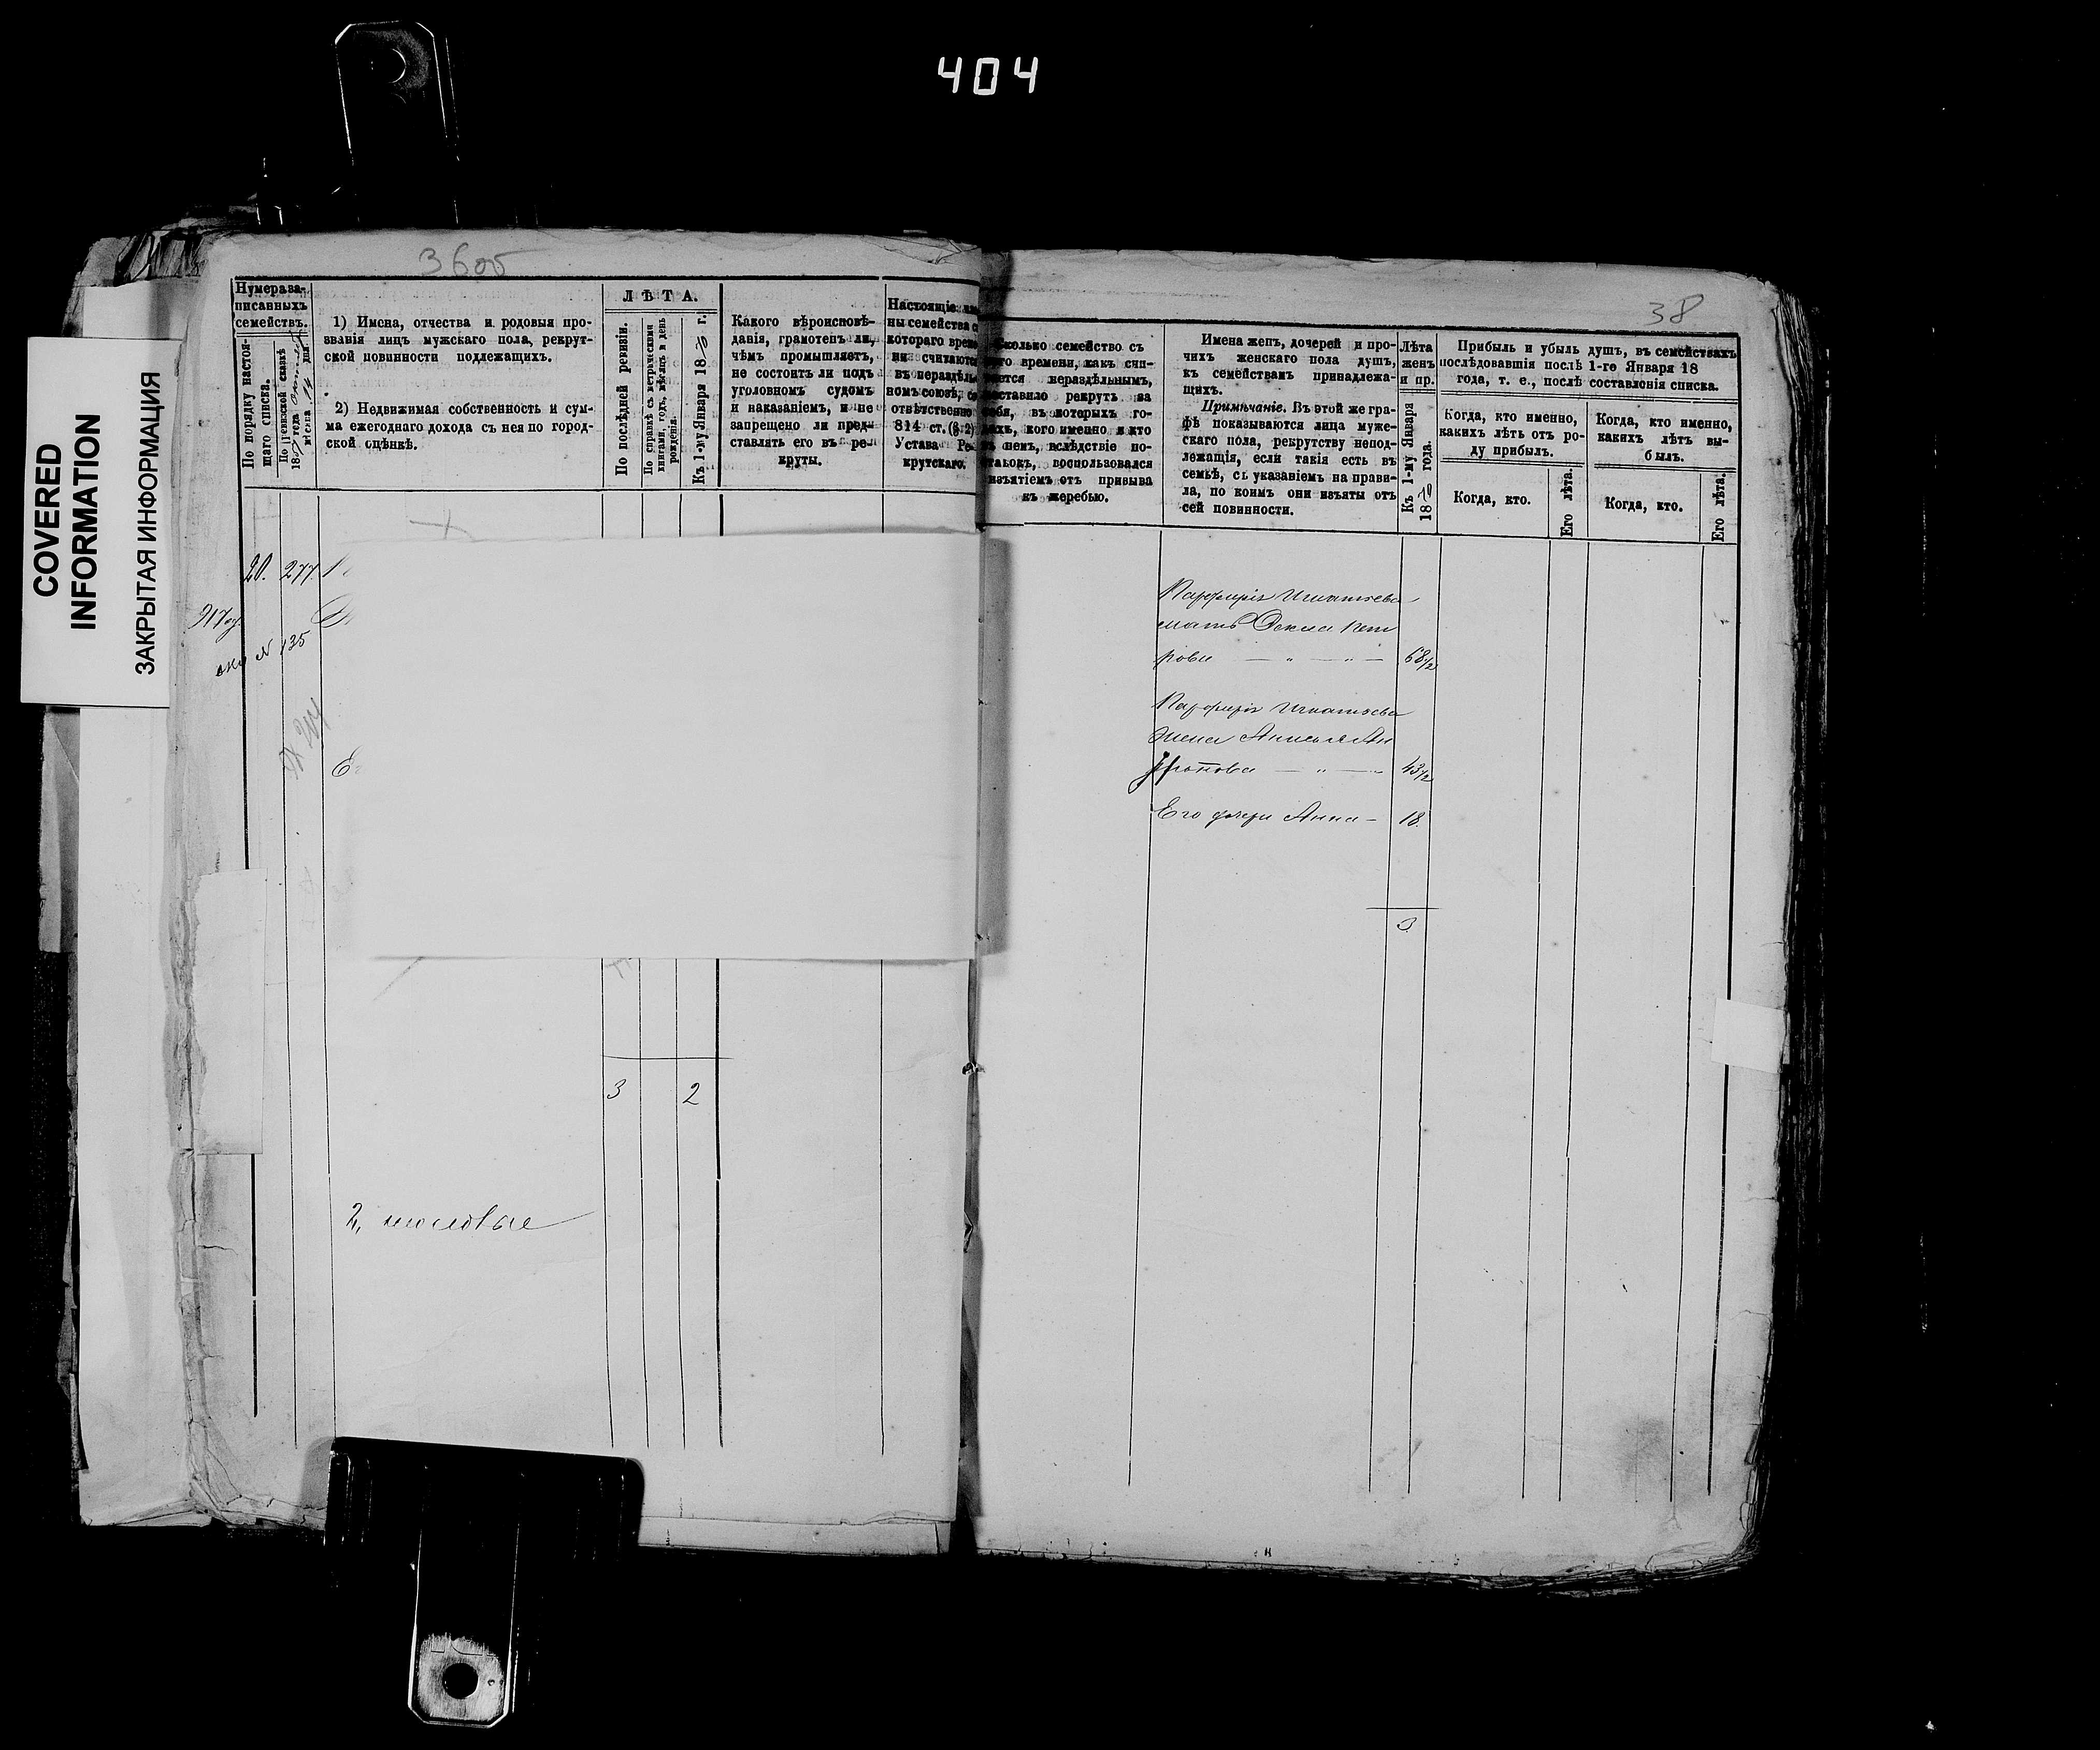 404
COVERED
INFORMATION
ЗАКРЫТАЯ ИНФОРМАЦИЯ
38
Нумера за-
писанныхъ
семействъ.
По порядку настоя-
щаго списка.
По ревизской сказкѣ
1) Имена, отчества и родовыя про-
званія лицъ мужскаго пола, рекрут-
ской повинности подлежащихъ.
2) Недвижимая собственность и сум-
ма ежегоднаго дохода съ нея по город-
ской оцѣнкѣ.
ЛѢТА.
По послѣдней ревизіи.
По справкѣ съ метрическими
книгами, годъ, мѣсяцъ и день
рожденія.
Къ 1-му Января 1870 г.
Какого вѣроисповѣ-
данія, грамотенъ ли,
чѣмъ промышляетъ,
не состоитъ ли подъ
уголовномъ судомъ
и наказаніемъ, и не
запрещено ли пред-
ставлять его въ ре-
круты.
Настоящіе
ны семейства
котораго
ни считаются
въ нераздѣль
номъ союзѣ,
отвѣтственно
814 ст. (§ 2)
Устава Ре-
крутскаго.
Сколько семейство съ
того времени, какъ спи-
нераздѣльнымъ,
поставило рекрутъ за
себя, въ которыхъ го-
дахъ, кого именно и кто
въ немъ, вслѣдствіе по-
воспользовался
изъятіемъ отъ призыва
къ жеребью.
Имена женъ, дочерей и про-
чихъ женскаго пола душъ,
къ семействамъ принадлежа-
щихъ.
Примѣчаніе. Въ этой же гра-
фѣ показываются лица муже-
скаго пола, рекрутству непод-
лежащія, если такія есть въ
семьѣ, съ указаніемъ на прави-
ла, по коимъ они изъяты отъ
сей повинности.
Лѣта
женъ
и пр.
Къ 1-му Января
1870 года.
Прибыль и убыль душъ, въ семействахъ
послѣдовавшія послѣ 1-го Января 18
года, т. е., послѣ составленія списка.
Когда, кто именно,
какихъ лѣтъ отъ ро-
ду прибылъ.
Когда, кто именно,
какихъ лѣтъ вы-
былъ.
Когда, кто.
Его лѣта.
Когда, кто.
Его лѣта.
20. 277.
N 135
Парфирія Игнатьева
мать Фекла Пет
рова — „ — „ — 68½
Парфирія Игнатьева
жена Анисья Ан
дронова — „ — „ 43½
Его дочери Анна — 18.
3.
3 2
2,